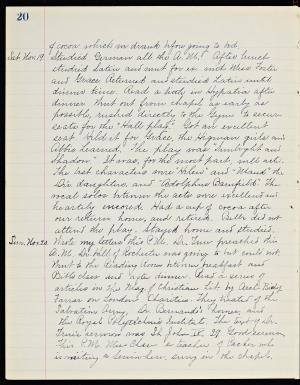 20
of cocoa which we drank before going to bed.
Sat. Nov. 19. Studied German all the A.M. After lunch
studied Latin and went for a walk with Miss Foster
and Grace. Returned and studied Latin until
dinner time. Read a little in Hypatia after
dinner. Went out from chapel as early as
possible, rushed directly to the Gym to secure
seats for the "Hall play". Got an excellent
seat. Held it for Grace, the
Abbie Learned. The play was "Sunlight and
Shadow". It was, for the most part, well acted.
The last characters were "Helen" and "Maud" the
Dix. daughters, and "Adolphus Bamfield". The
vocal solos between the acts were excellent and
heartily encored. Had a cup of cocoa after
our return home, and retired. Belle did not
attend the play. Stayed home and studied.
Sun. Nov. 20. Wrote my letters this P.M. Dr. True preached this
A.M. Dr. Hall of Rochester was going to but could not.
Went to the Reading Room between breakfast and
Bible class and after dinner. Read a series of
articles in the Mag. of Christian Lit. by Arch
Farrar on London Charities. They treated of the
Salvation Army, Dr. Bernardo's Homes, and
the Royal Polytechnic Institute. The text of Dr.
True's sermon was St. John
This P.M. Miss Chew a teacher of Packer who
is visiting sang in the chapel.